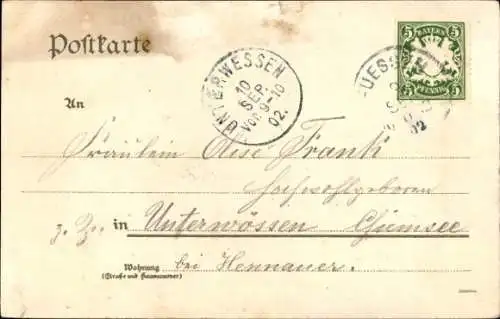 Postkarte
5 BAYERN 5
PFENNIG
UNTERWESSEN
10
SEP.
Vor. 9-10
02.
FUESS
02
An
Fräulein Frank
Hochwohlgeboren
z. Zt. in Unterwössen Chiemsee
Wohnung bei Hennauer.
(Straße und Hausnummer)